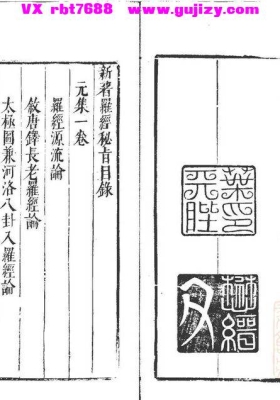 VX rbt7688 www.gujizy.com
新著羅經秘旨目錄
元集一卷
羅經源流論
敘唐鐸長老羅經論
太極圖兼河洛八卦入羅經論